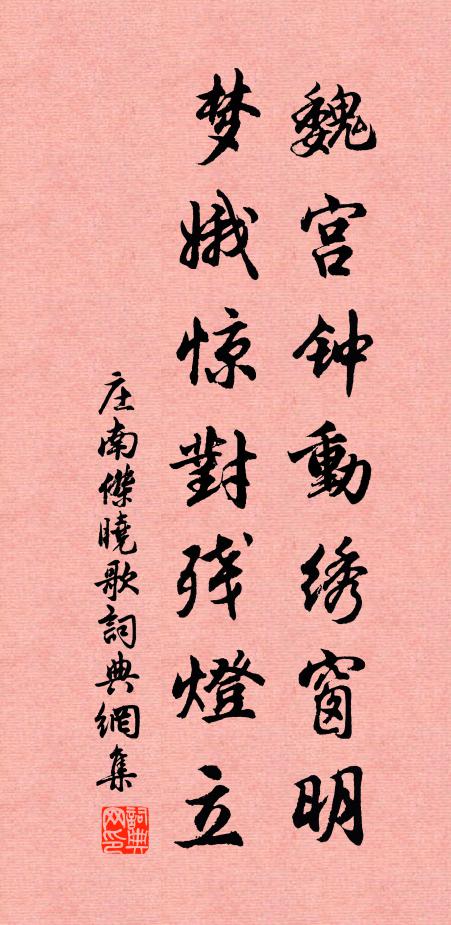 魏宫钟動绣窗明
梦娥惊對残燈立
庄南傑曉歌詞典網集
詞典網印